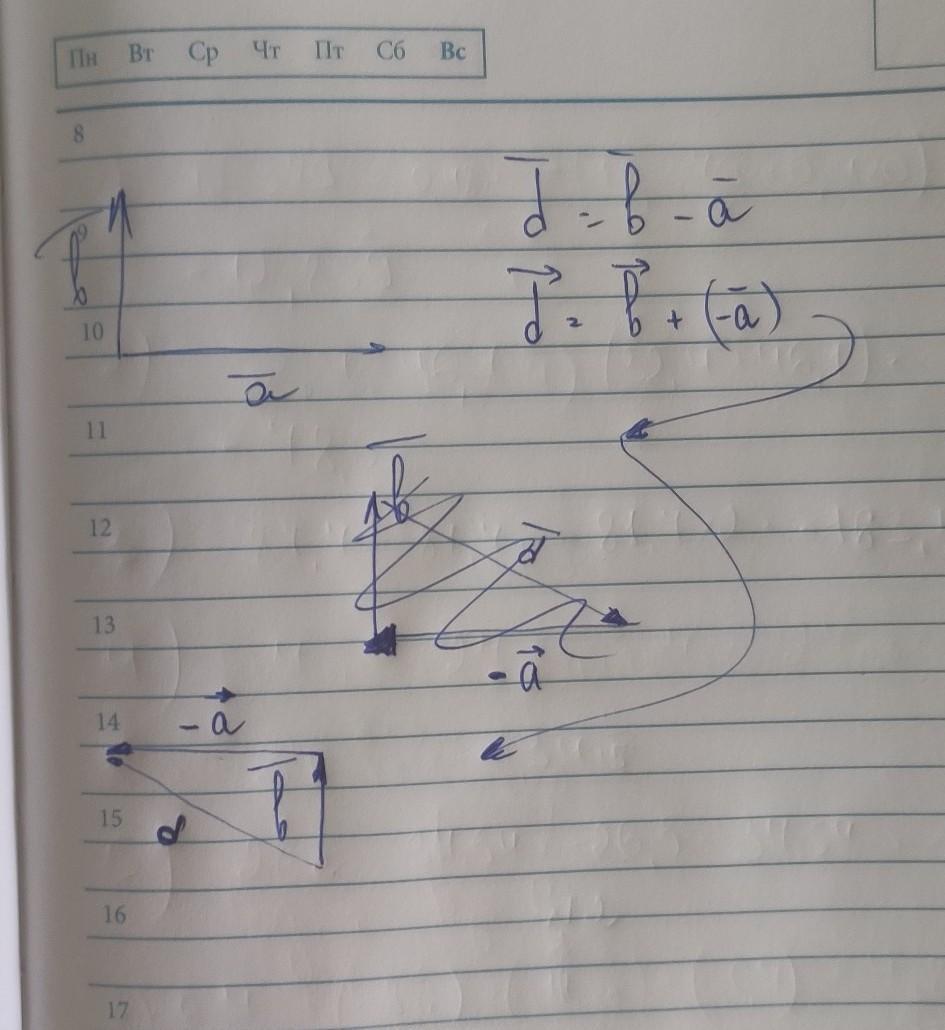 Пн Вт Ср Чт Пт Сб Вс
8
d̅ = b̅ - a̅
9
b̅
d⃗ = b⃗ + (-a̅)
10
a̅
11
b̅
12
d̅
13
-a⃗
14
-a⃗
b̅
15
d
16
17